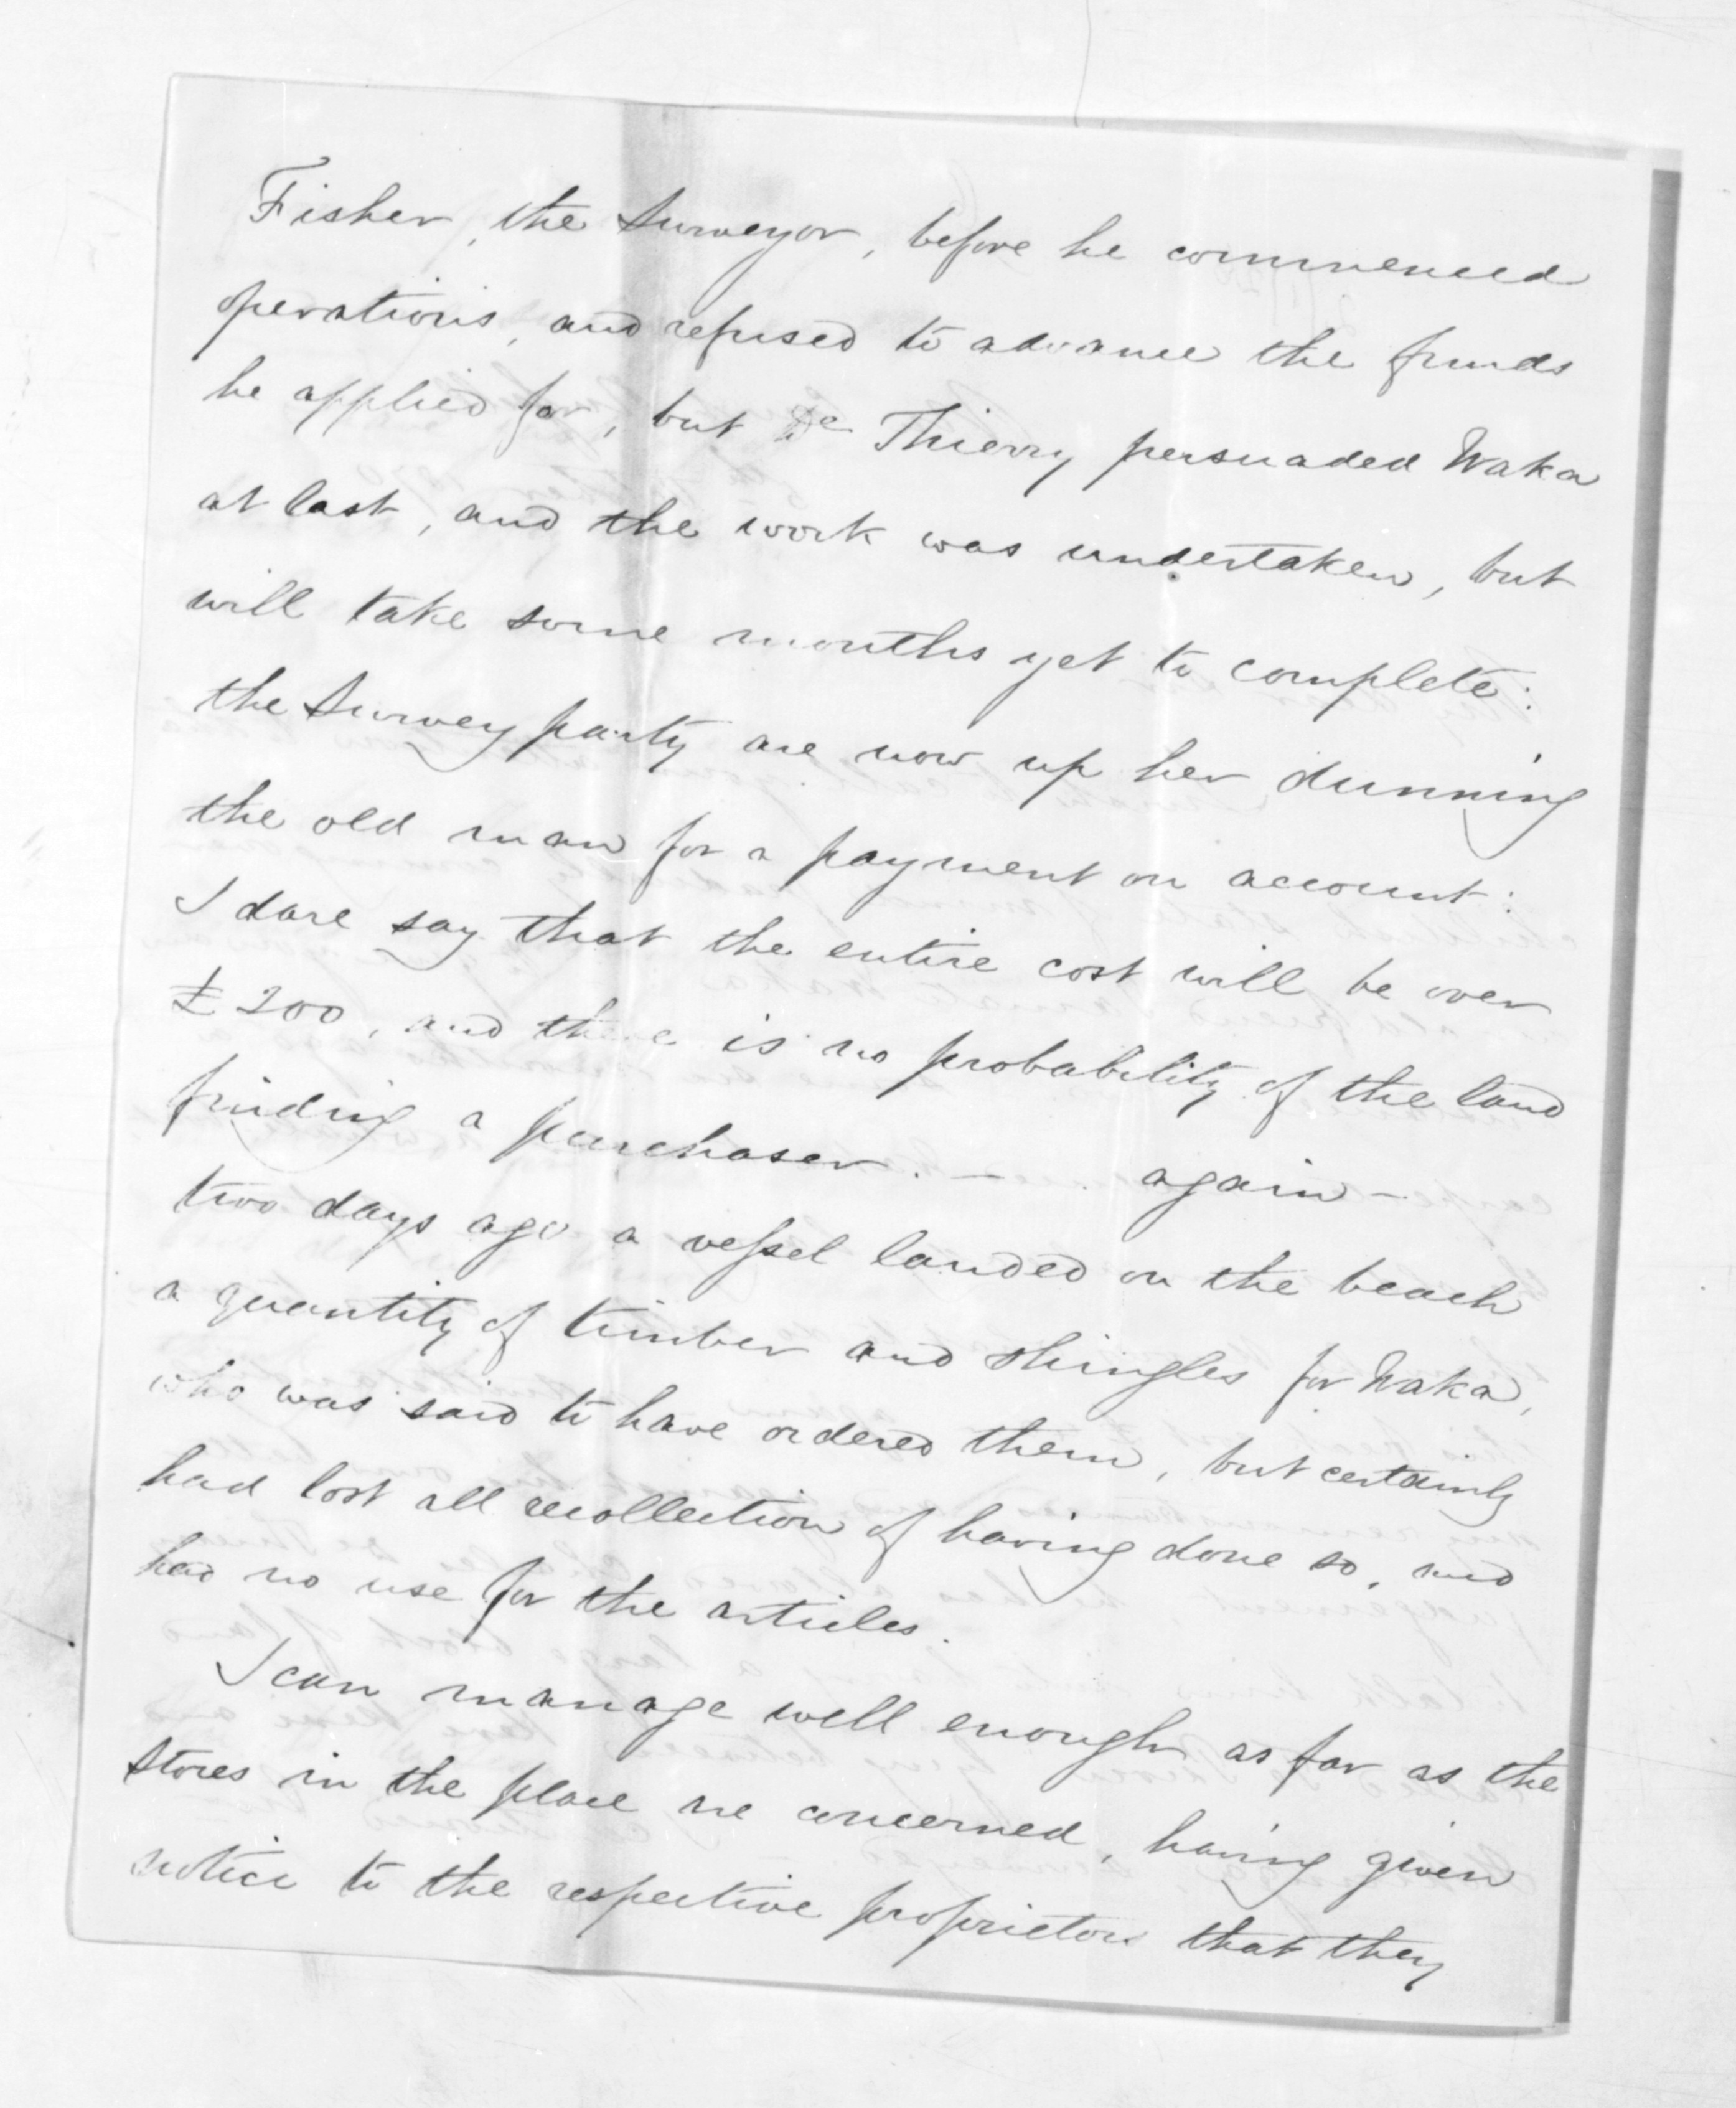 Fisher, the Surveyor, before he commenced
operations, and refused to advance the funds
he applied for, but De Thierry persuaded Waka
at last, and the work was undertaken, but
will take some months yet to complete:
the Survey party are now up her dunning
the old man for a payment on account:
I dare say that the entire cost will be over
£200, and there is no probability of the land
finding a purchaser. — again —
two days ago a vessel landed on the beach
a quantity of timber and shingles for Waka,
who was said to have ordered them, but certainly
had lost all recollection of having done so, and
had no use for the articles.
I can manage well enough as far as the
stores in the place are concerned, having given
notice to the respective proprietors that they